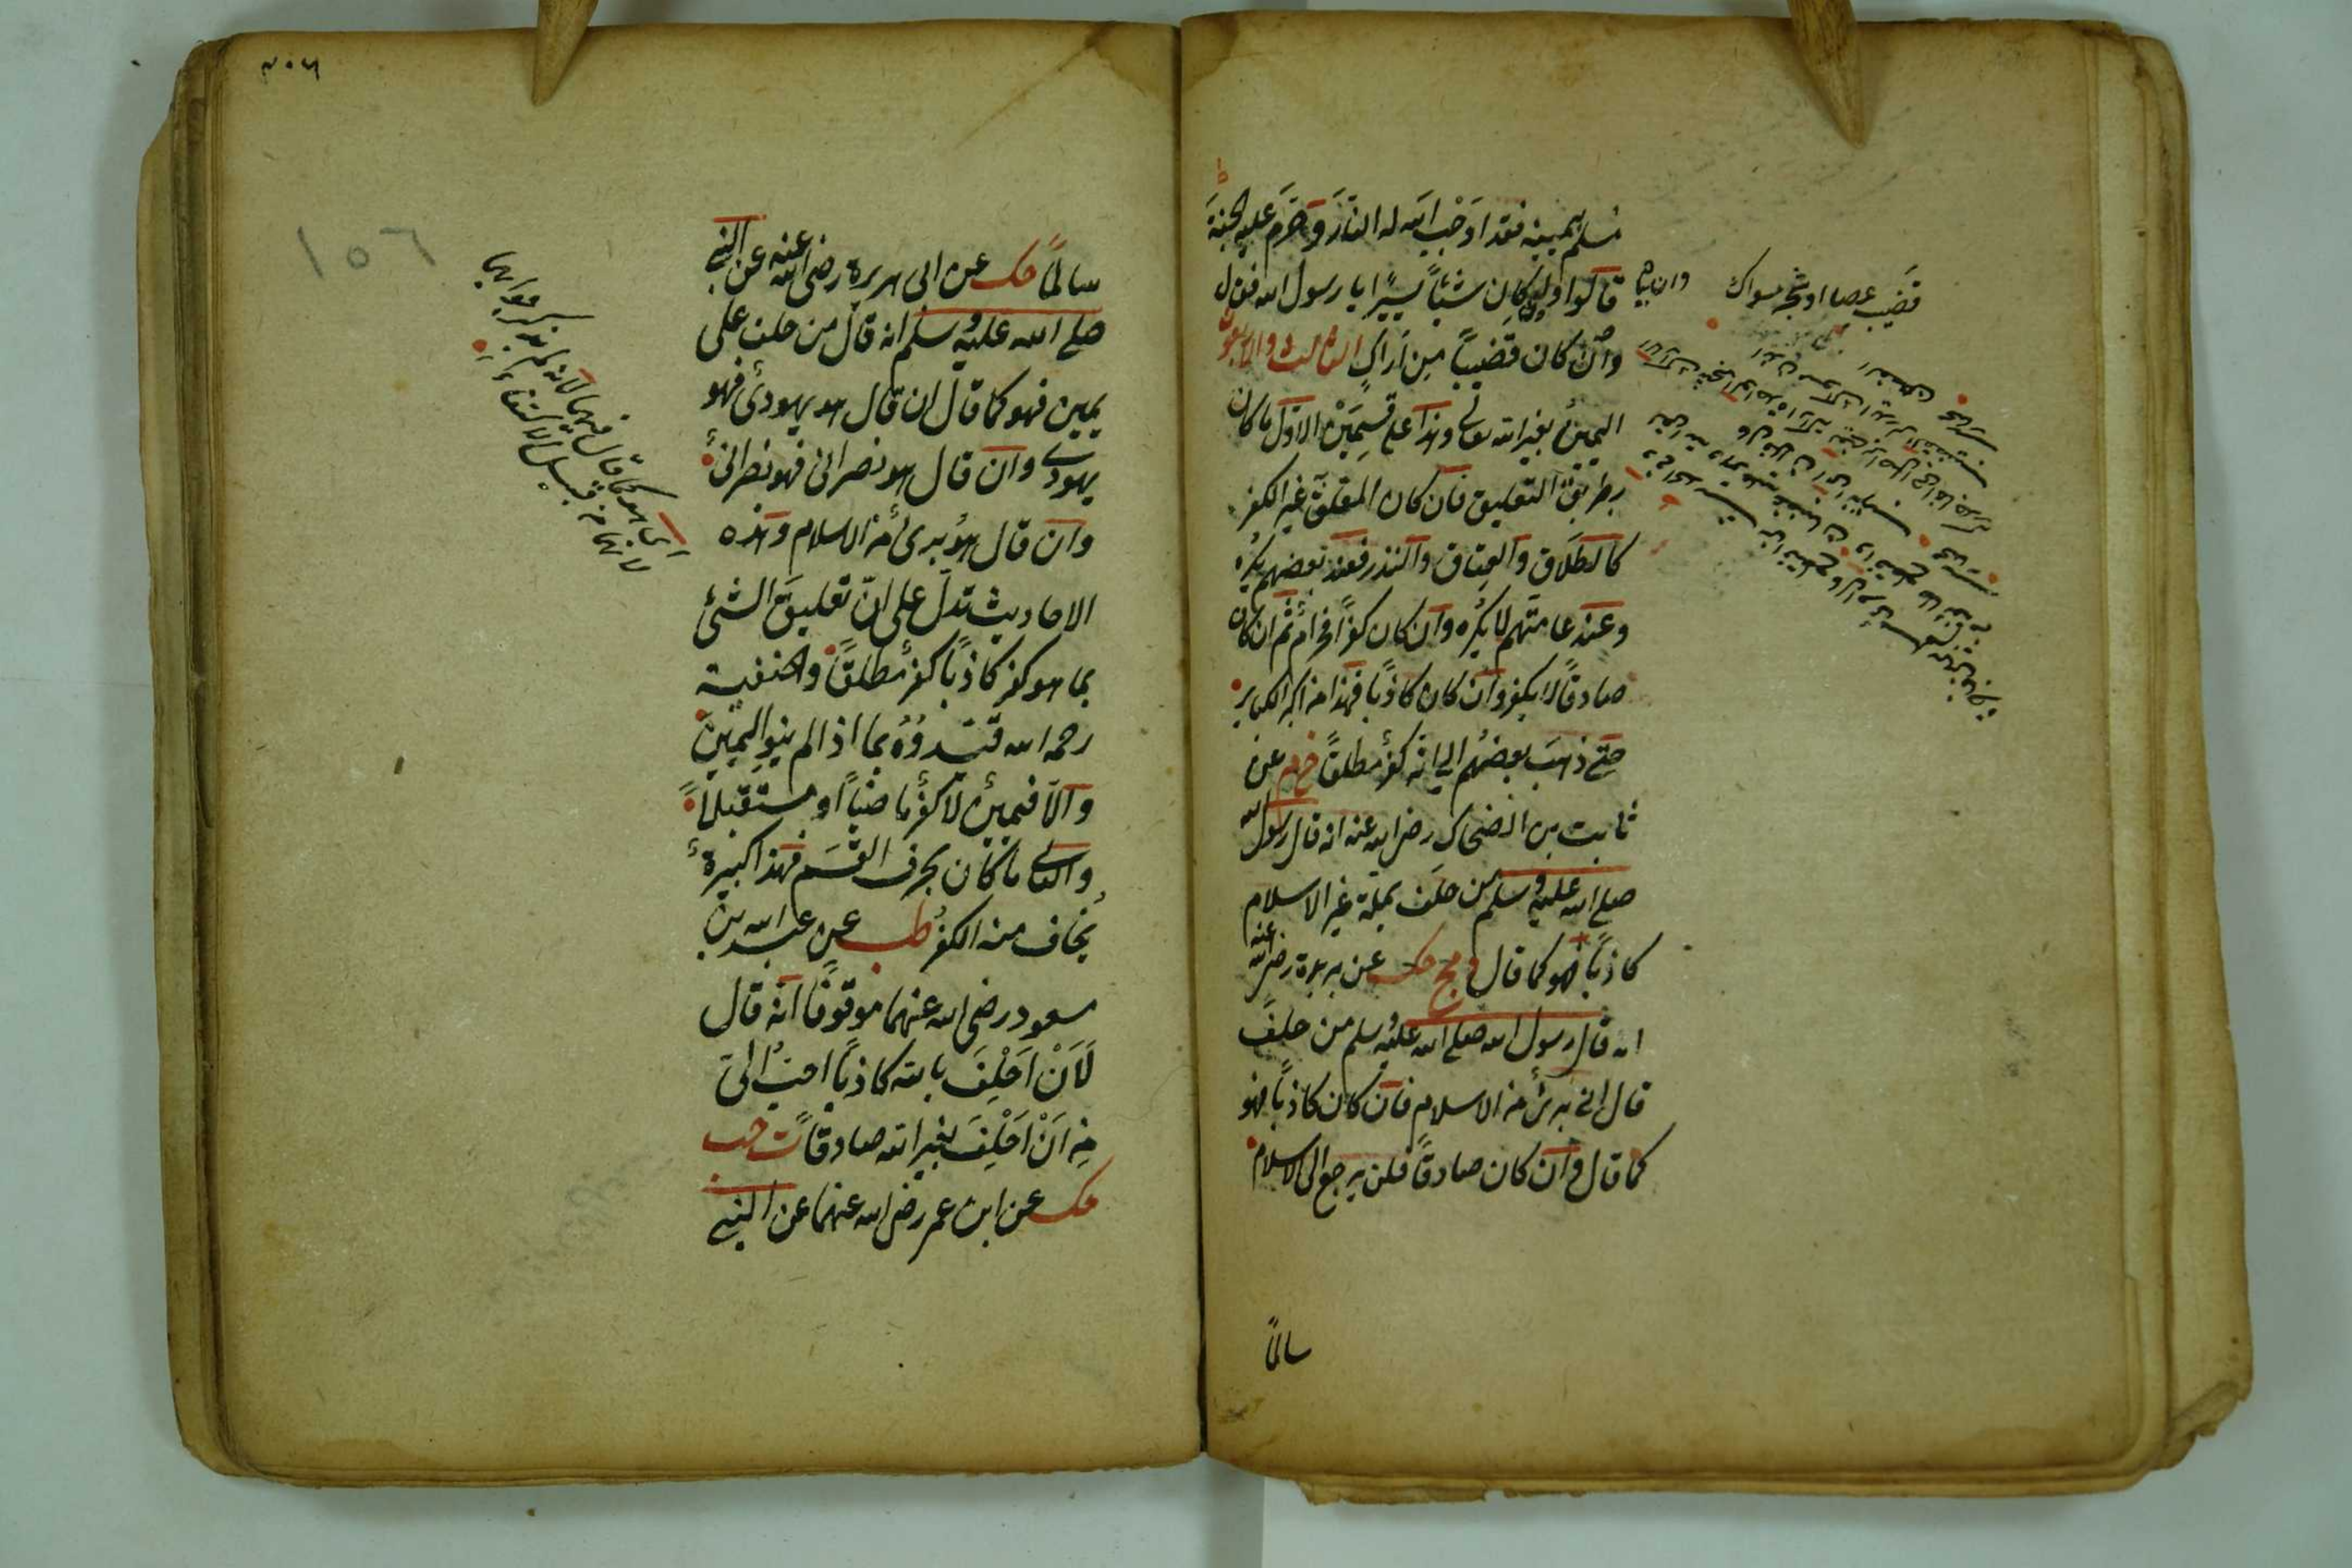 مسلم بيمينه فقد اَوْجَبَ الله له النّارَ وَحَرَّمَ عليه الجنةَ
قالوا ولو كان شيئاً يسيرًا يا رسول الله فقال
وان كان قضيباً مِن اَراكٍ الثالث والاربعون
اليمينُ بغير الله تعالى وهذا على قسمَيْن الاوّل ما كان
بطريق التعليق فان كان المعلّق غير الكفر
كالطلاق والعتاق والنذر فعند بعضهم يكره
وعند عامتهم لا يكره وان كان كفرًا فحرامٌ ثم ان كان
صادقًا لا يكفر وان كان كاذبًا فهذا من اكبر الكبائر
حتى ذهب بعضهم الى انه كفرٌ مطلقًا خ م عن
ثابت بن الضحاك رضى الله عنه انه قال رسول الله
صلى الله عليه وسلم من حلف بملة غير الاسلام
كاذبًا فهو كما قال د مج حك عن بريدة رضى الله عنه
انه قال رسول الله صلى الله عليه وسلم من حلف
قال انى برئ من الاسلام فان كان كاذبًا فهو
كما قال وان كان صادقًا فلن يرجع الى الاسلام
سالمًا
قضيب عصا او شجر مسواك
٣٠٦
١٥٦
سالمًا حك عن ابى هريرة رضى الله عنه عن النبى
صلى الله عليه وسلم انه قال من حلف على
يمين فهو كما قال ان قال هو يهودىٌ فهو
يهودى وان قال هو نصرانى فهو نصرانىٌ
وان قال هو برئٌ من الاسلام وهذه
الاحاديث تدلّ على انّ تعليق الشئ
بما هو كفر كاذبًا كفرٌ مطلقًا والحنفية
رحمه الله قيّدوُهُ بما اذا لم ينوِ اليمينَ
والّا فيمينٌ لا كفرٌ ماضيًا او مستقبلاً
والثانى ما كان بحرف القسَم فهذا كبيرةٌ
يُخاف منه الكفرُ طب عن عبد الله بن
مسعود رضى الله عنهما موقوفًا انه قال
لَاَنْ اَحْلِفَ بالله كاذبًا احبُّ الىّ
مِن اَنْ اَحْلِفَ بغير الله صادقًا ت حب
حك عن ابن عمر رضى الله عنهما عن النبى
اى هو كما قال فيهما لانه لم يذكر جوابهما